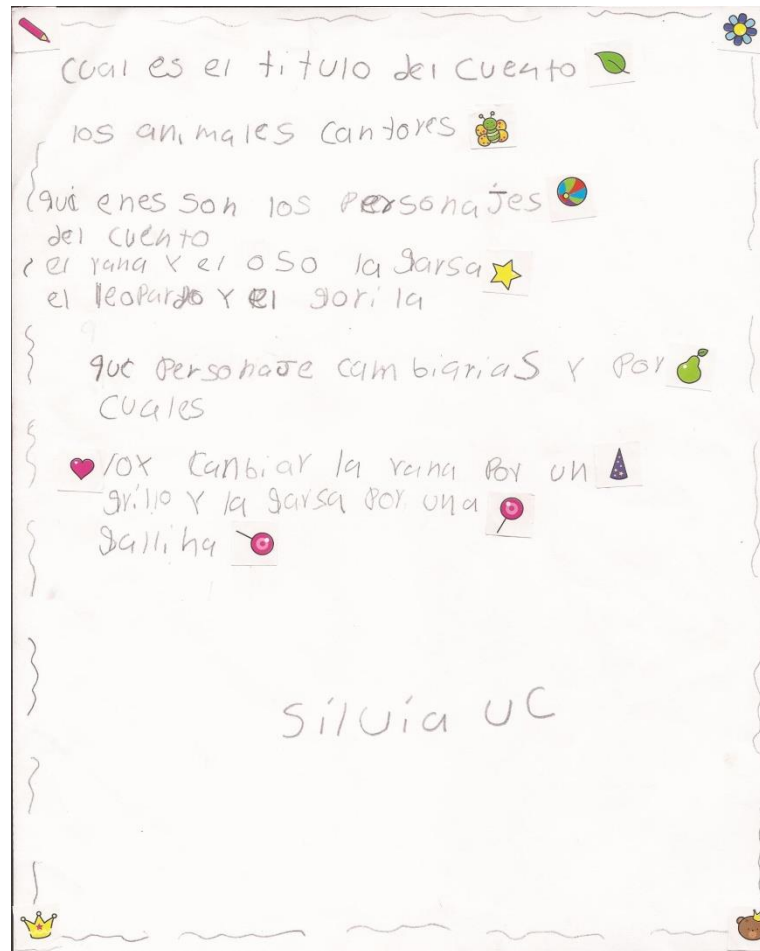 cual es el titulo del cuento
los animales cantores
qui enes son los personajes
del cuento
el rana y el oso la garsa
el leopardo y el gorila
que personaje cambiarias y por
cuales
canbiar la rana por un
grillo y la garsa por una
gallina
Silvia UC